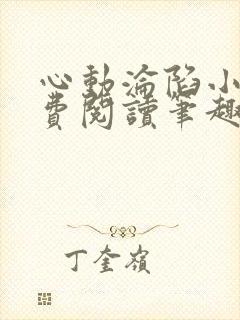 心動淪陷小
費閱讀筆趣
丁奎嶺